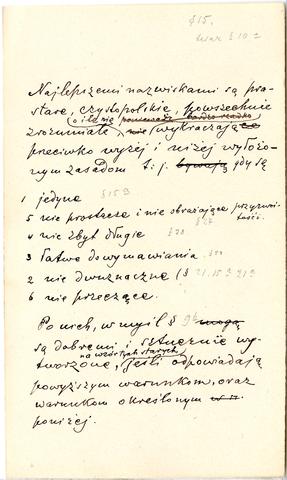 § 15.
teraz § 10 2
Najlepszemi nazwiskami są pro-
stare, czystopolskie, powszechnie
o ile nie ponieważ bardzo rzadko
zrozumiałe nie wykraczające
przeciwko wyżej i niżej wyłożo-
nym zasadom t: j. bywają gdy są
1 jedyne § 15 9
5 nie prostacze i nie obrażające przyzwoi-
tości.
4 nie zbyt długie
3 łatwe do wymawiania.
2 nie dwuznaczne (§ 21.15 § 21 9
6 nie przeczące.
Po nich, w myśl § 9b mogą
są dobremi i sztucznie wy-
na wzór tych starych
tworzone, jeśli odpowiadają
powyższym warunkom, oraz
warunkom określonym w n.
poniżej.